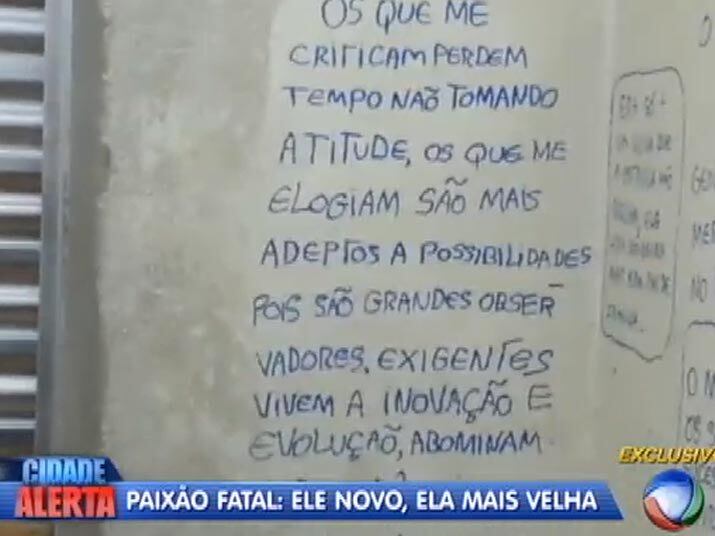 OS QUE ME
CRITICAM PERDEM
TEMPO NAÕ TOMANDO
ATITUDE, OS QUE ME
ELOGIAM SÃO MAIS
ADEPTOS A POSSIBILIDADES
POIS SÃO GRANDES OBSER-
VADORES, EXIGENTES
VIVEM A INOVAÇÃO E
EVOLUÇÃO, ABOMINAM
O
GE
ME
NO
O
OS
EXCLUSIV
CIDADE
ALERTA
PAIXÃO FATAL: ELE NOVO, ELA MAIS VELHA